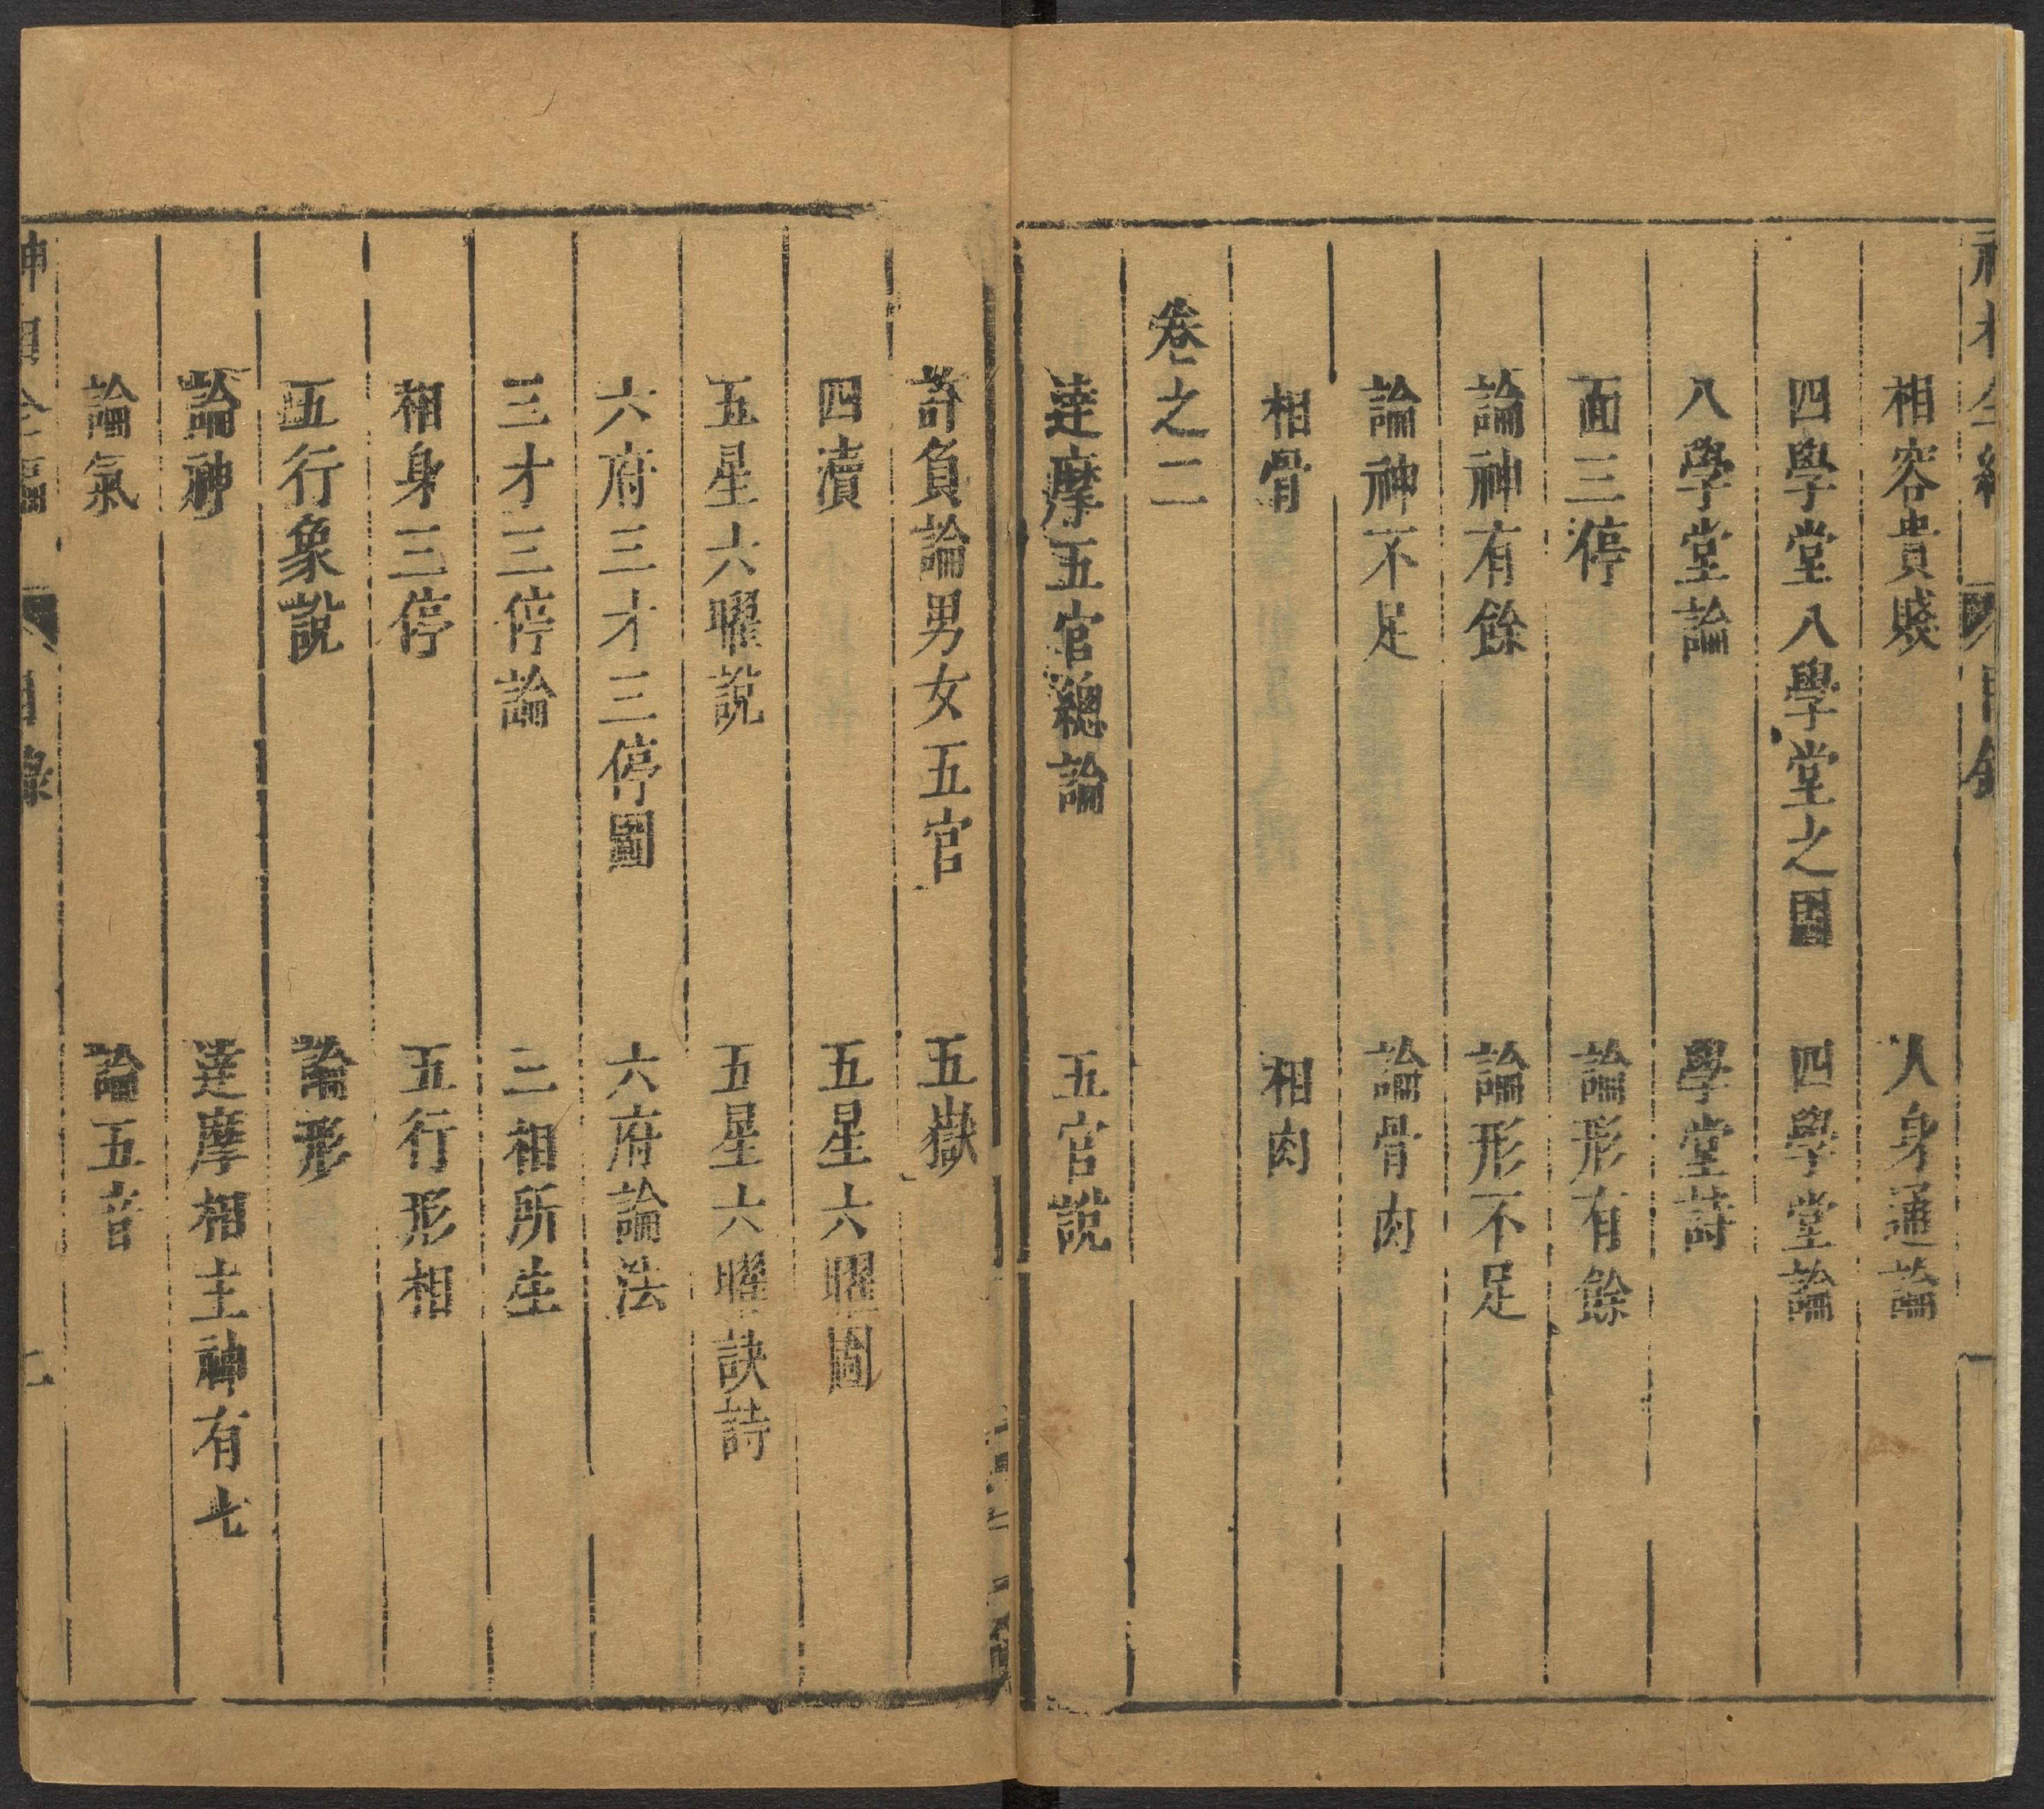 相容貴賤　人身通論
四學堂八學堂之圖　四學堂論
八學堂論　學堂詩
面三停　論形有餘
論神有餘　論形不足
論神不足　論骨肉
相骨　相肉
卷之二
達摩五官總論　五官說
許負論男女五官　五嶽
四瀆　五星六曜圖
五星六曜說　五星六曜訣詩
六府三才三停圖　六府論法
三才三停論　三相所生
相身三停　五行形相
五行象說　論形
論神　達摩相主神有七
論氣　論五音
神相全編　目錄　二